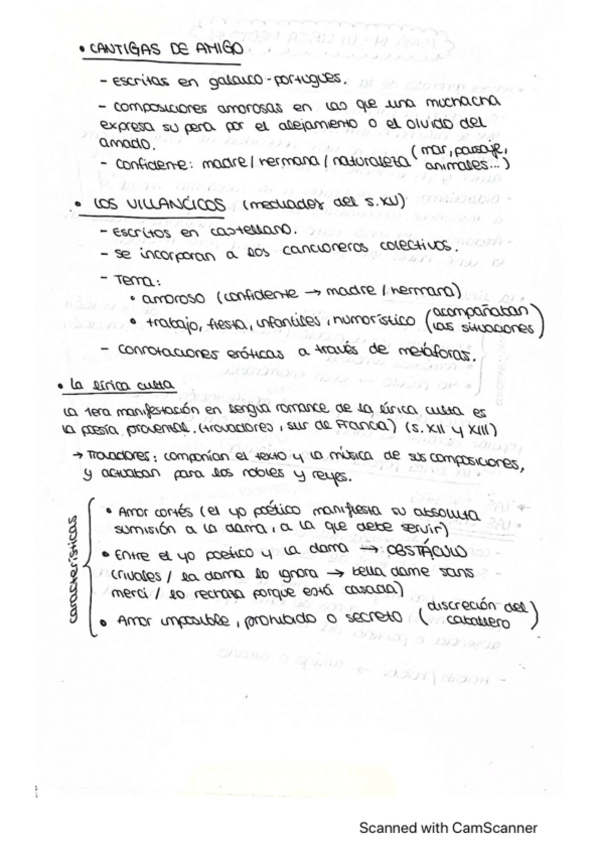 • CANTIGAS DE AMIGO
- escritas en galaico-portugués.
- composiciones amorosas en las que una muchacha
expresa su pena por el alejamiento o el olvido del
amado.
- confidente: madre/hermana/naturaleza (mar, paisaje,
animales...)
• LOS VILLANCICOS (mediados del s.XV)
- Escritos en castellano.
- se incorporan a los cancioneros colectivos.
- Tema:
• amoroso (confidente → madre/hermana)
• trabajo, fiesta, infantiles, humorístico (acompañaban
las situaciones)
- connotaciones eróticas a través de metáforas.
• La lírica culta
La 1era manifestación en lengua romance de la lírica culta es
la poesía provenzal. (trovadores, sur de Francia) (s. XII y XIII)
→ Trovadores: componían el texto y la música de sus composiciones,
y actuaban para los nobles y reyes.
características
• Amor cortés (el yo poético manifiesta su absoluta
sumisión a la dama, a la que debe servir)
• Entre el yo poético y la dama → OBSTÁCULO
(rivales / la dama lo ignora → bella dame sans
merci / lo rechaza porque está casada)
• Amor imposible, prohibido o secreto (discreción del
caballero)
Scanned with CamScanner